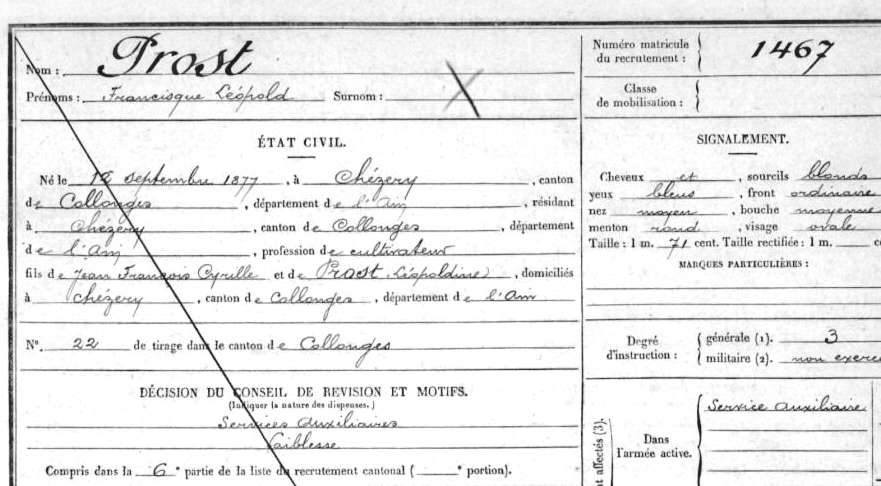 Nom : Prost
Prénoms : Francisque Léopold Surnom :
ÉTAT CIVIL.
Né le 12 septembre 1877, à Chézery, canton
de Collonges, département de l'Ain, résidant
à Chézery, canton de Collonges, département
de l'Ain, profession de cultivateur
fils de Jean François Cyrille et de Prost Léopoldine, domiciliés
à Chézery, canton de Collonges, département de l'Ain
N°. 22 de tirage dans le canton de Collonges
DÉCISION DU CONSEIL DE REVISION ET MOTIFS.
(Indiquer la nature des dispenses.)
Services Auxiliaires
Faiblesse
Compris dans la 6e partie de la liste du recrutement cantonal ( e portion).
Numéro matricule
du recrutement : 1467
Classe
de mobilisation :
SIGNALEMENT.
Cheveux et, sourcils blonds
yeux bleus, front ordinaire
nez moyen, bouche moyenne
menton rond, visage ovale
Taille : 1 m. 71 cent. Taille rectifiée : 1 m. c
MARQUES PARTICULIÈRES :
Degré
d'instruction :
générale (1). 3
militaire (2). non exercé
nt affectés (3).
Dans
l'armée active.
Service auxiliaire